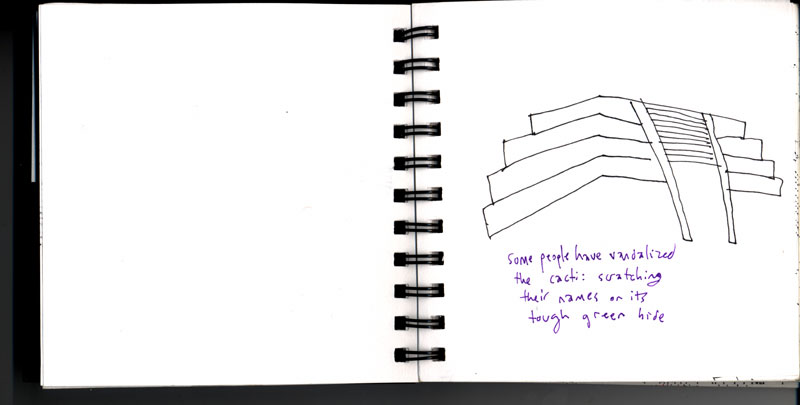 some people have vandalized
the cacti: scratching
their names on its
tough green hide